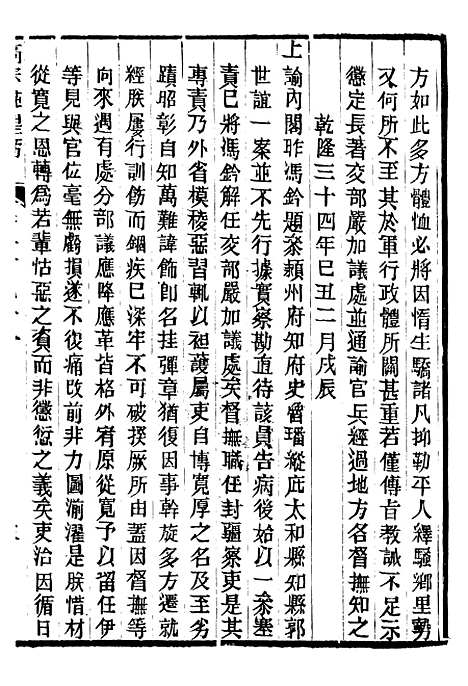 方如此多方體恤必將因惰生驕諸凡抑勒平人繹騷鄉里勢
又何所不至其於軍行政體所關甚重若僅傳旨教誡不足示
懲定長著交部嚴加議處並通諭官兵經過地方各督撫知之
乾隆三十四年巳丑二月戌辰
上諭內閣昨馮鈐題叅潁州府知府史魯璠縱庇太和縣知縣郭
世誼一案並不先行據實察勘直待該員告病後始以一叅塞
責巳將馮鈐解任交部嚴加議處矣督撫職任封疆察吏是其
專責乃外省模稜惡習輒以袒護屬吏自博寬厚之名及至劣
蹟昭彰自知萬難諱飾卽名挂彈章猶復因事斡旋多方遷就
經朕屢行訓飭而錮疾巳深牢不可破揆厥所由蓋因督撫等
向來遇有處分部議應降應革皆格外宥原從寬予以留任伊
等見與官位毫無虧損遂不復痛改前非力圖湔濯是朕惜材
從寬之恩轉爲若輩怙惡之資而非懲愆之義矣吏治因循日